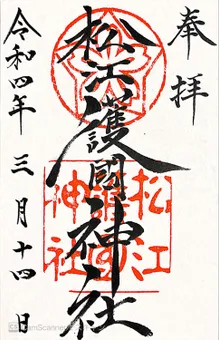 奉拝
松江護國神社
松江
護國
神社
令和四年三月十四日
CamScanner